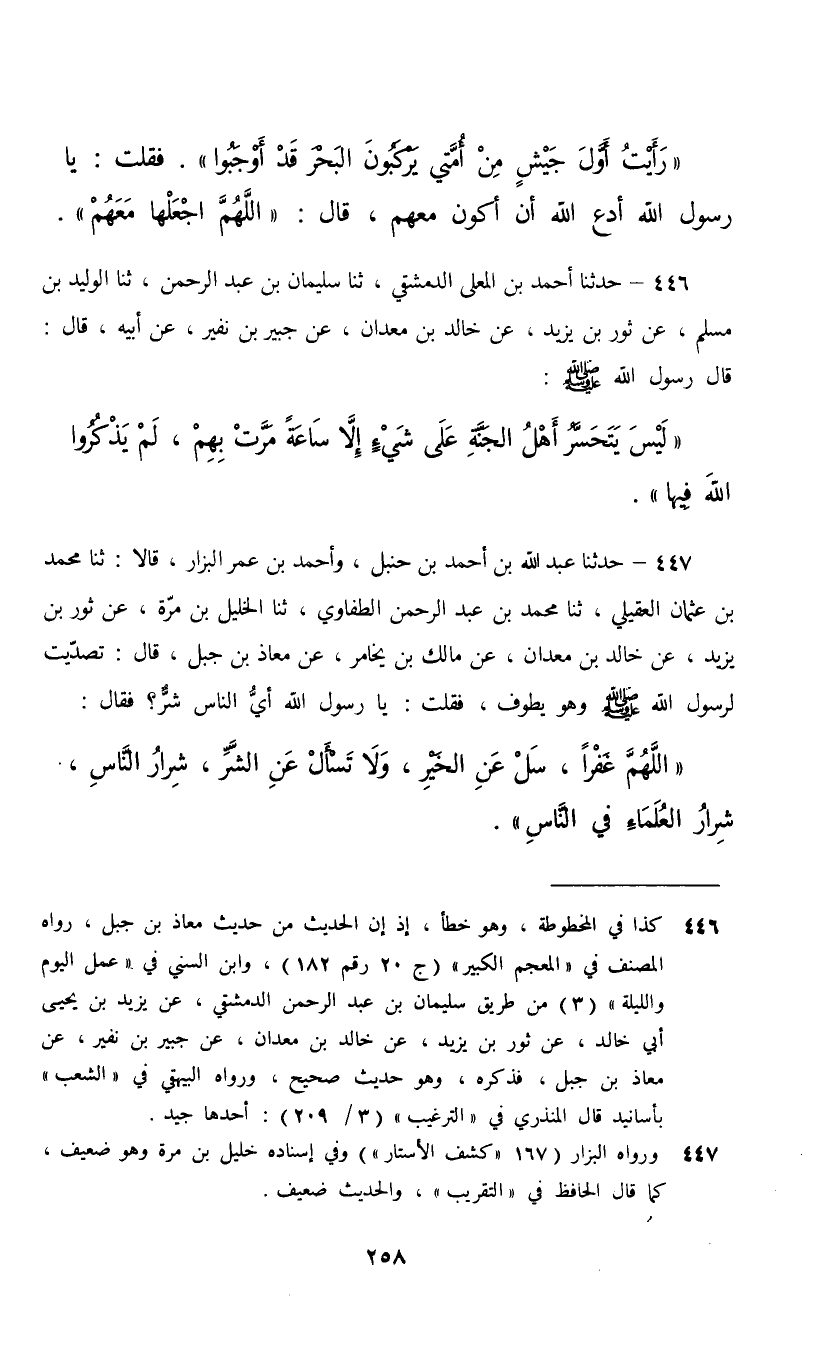 « رَأَيْتُ أَوَّلَ جَيْشٍ مِنْ أُمَّتِي يَرْكَبُونَ البَحْرَ قَدْ أَوْجَبُوا » . فقلت : يا
رسول الله أدع الله أن أكون معهم ، قال : « اللَّهُمَّ اجْعَلْها مَعَهُمْ » .
٤٤٦ – حدثنا أحمد بن المعلى الدمشقي ، ثنا سليمان بن عبد الرحمن ، ثنا الوليد بن
مسلم ، عن ثور بن يزيد ، عن خالد بن معدان ، عن جبير بن نفير ، عن أبيه ، قال :
قال رسول الله ﷺ :
« لَيْسَ يَتَحَسَّرُ أَهْلُ الجَنَّةِ عَلَى شَيْءٍ إِلَّا سَاعَةً مَرَّتْ بِهِمْ ، لَمْ يَذْكُرُوا
اللهَ فِيها » .
٤٤٧ – حدثنا عبد الله بن أحمد بن حنبل ، وأحمد بن عمر البزار ، قالا : ثنا محمد
بن عثمان العقيلي ، ثنا محمد بن عبد الرحمن الطفاوي ، ثنا الخليل بن مرّة ، عن ثور بن
يزيد ، عن خالد بن معدان ، عن مالك بن يخامر ، عن معاذ بن جبل ، قال : تصدّيت
لرسول الله ﷺ وهو يطوف ، فقلت : يا رسول الله أيُّ الناس شرٌّ؟ فقال :
« اللَّهُمَّ غَفْراً ، سَلْ عَنِ الخَيْرِ ، وَلَا تَسْأَلْ عَنِ الشَّرِّ ، شِرارُ النَّاسِ ،
شِرارُ العُلَمَاءِ في النَّاسِ » .
٤٤٦ كذا في المخطوطة ، وهو خطأ ، إذ إن الحديث من حديث معاذ بن جبل ، رواه
المصنف في « المعجم الكبير » ( ج ٢٠ رقم ١٨٢ ) ، وابن السني في « عمل اليوم
والليلة » ( ٣ ) من طريق سليمان بن عبد الرحمن الدمشقي ، عن يزيد بن يحيى
أبي خالد ، عن ثور بن يزيد ، عن خالد بن معدان ، عن جبير بن نفير ، عن
معاذ بن جبل ، فذكره ، وهو حديث صحيح ، ورواه البيهقي في « الشعب »
بأسانيد قال المنذري في « الترغيب » ( ٣ / ٢٠٩ ) : أحدها جيد .
٤٤٧ ورواه البزار ( ١٦٧ « كشف الأستار » ) وفي إسناده خليل بن مرة وهو ضعيف ،
كما قال الحافظ في « التقريب » ، والحديث ضعيف .
٢٥٨